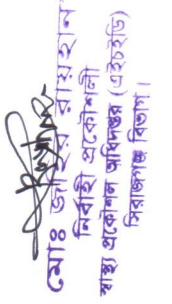 মোঃ রায়হান
নির্বাহী প্রকৌশলী
স্বাস্থ্য প্রকৌশল অধিদপ্তর (এইচইডি)
সিরাজগঞ্জ বিভাগ।